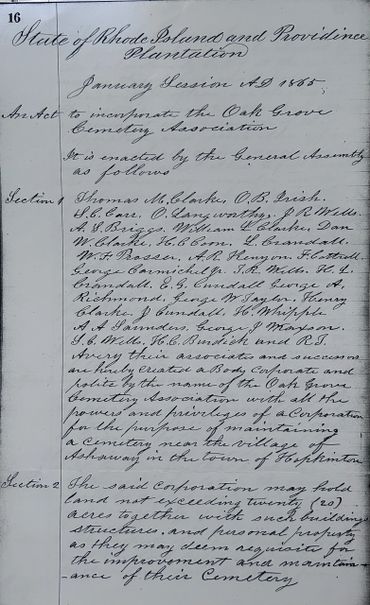 16
State of Rhode Island and Providence
Plantation
January Session AD 1865
An Act to incorporate the Oak Grove
Cemetery Association
It is enacted by the General Assembly
as follows
Section 1 Thomas M. Clarke, O. B. Irish.
S. C. Carr, O. Langworthy, J R Wells.
A. S. Briggs, William L Clarke, Dan
W. Clarke, H. C Coon. L. Crandall.
W. F Prosser, A R Kenyon. F. Cottrell.
George Carmichel Jr. T. R. Wells. H. L.
Crandall, E. G. Cundall George A.
Richmond, George W Taylor, Henry
Clarke, J Cundall, H. Whipple
A A Saunders, George J Maxson.
S. C. Wells, H. C. Burdick and R. T.
Avery their associates and successors
are hereby created a Body Corporate and
polite by the name of the Oak Grove
Cemetery Association with all the
powers and privileges of a Corporation
for the purpose of maintaining
a cemetery near the village of
Ashaway in the town of Hopkinton
Section 2 The said Corporation may hold
land not exceeding twenty (20)
acres together with such buildings
structures. and personal property
as they may deem requisite for
the improvement and mainten-
-ance of their Cemetery